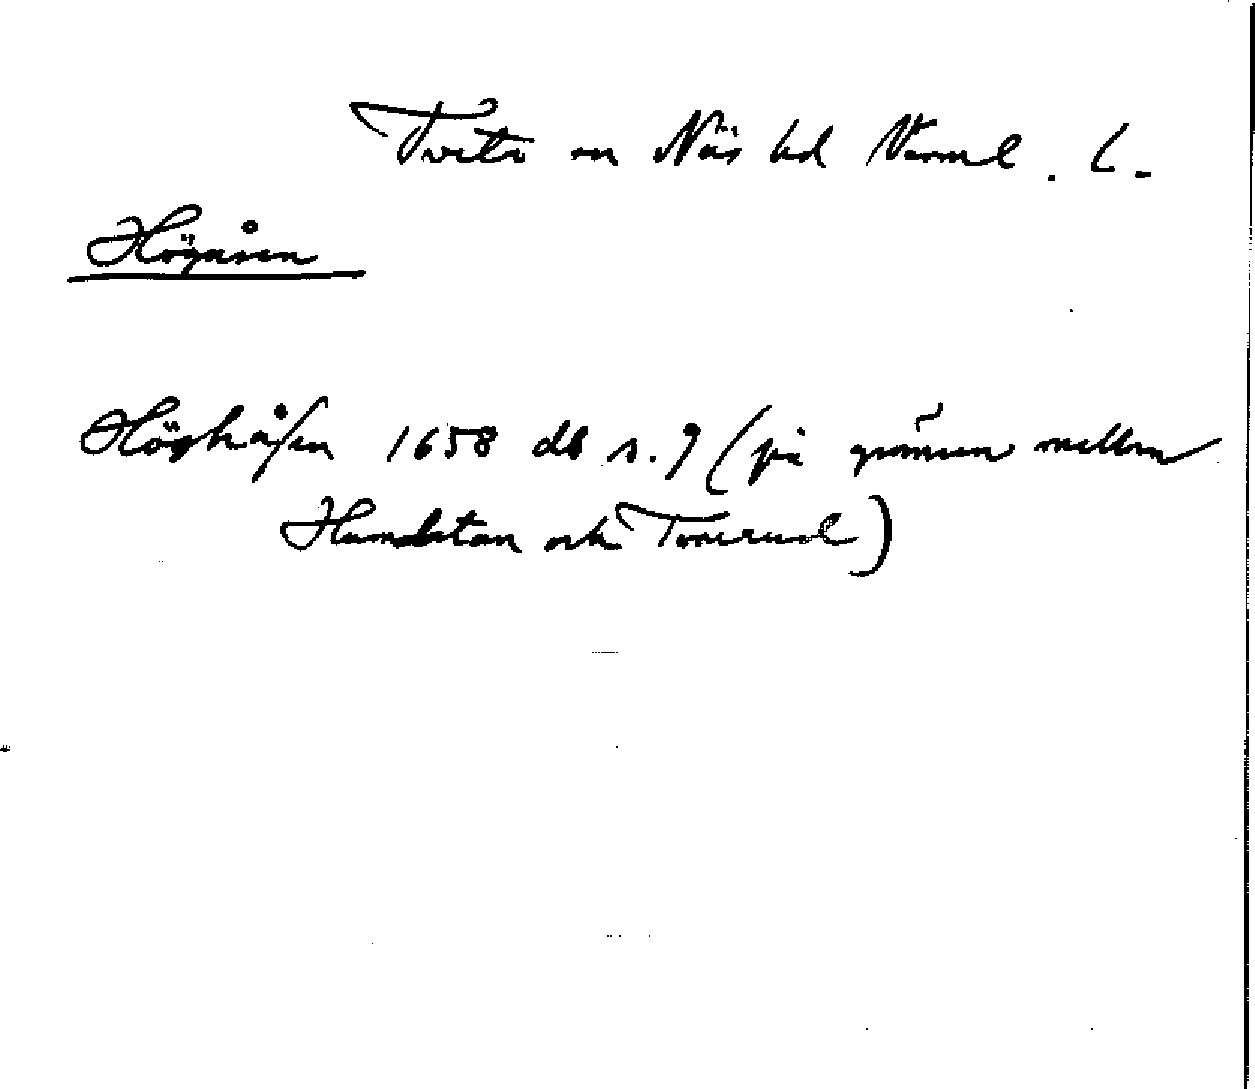 Tveta sn Näs hd Värml. l.
Högåsen
Höghåsen 1658 db s. 9 (på gränsen mellan
Humletan och Torerud)